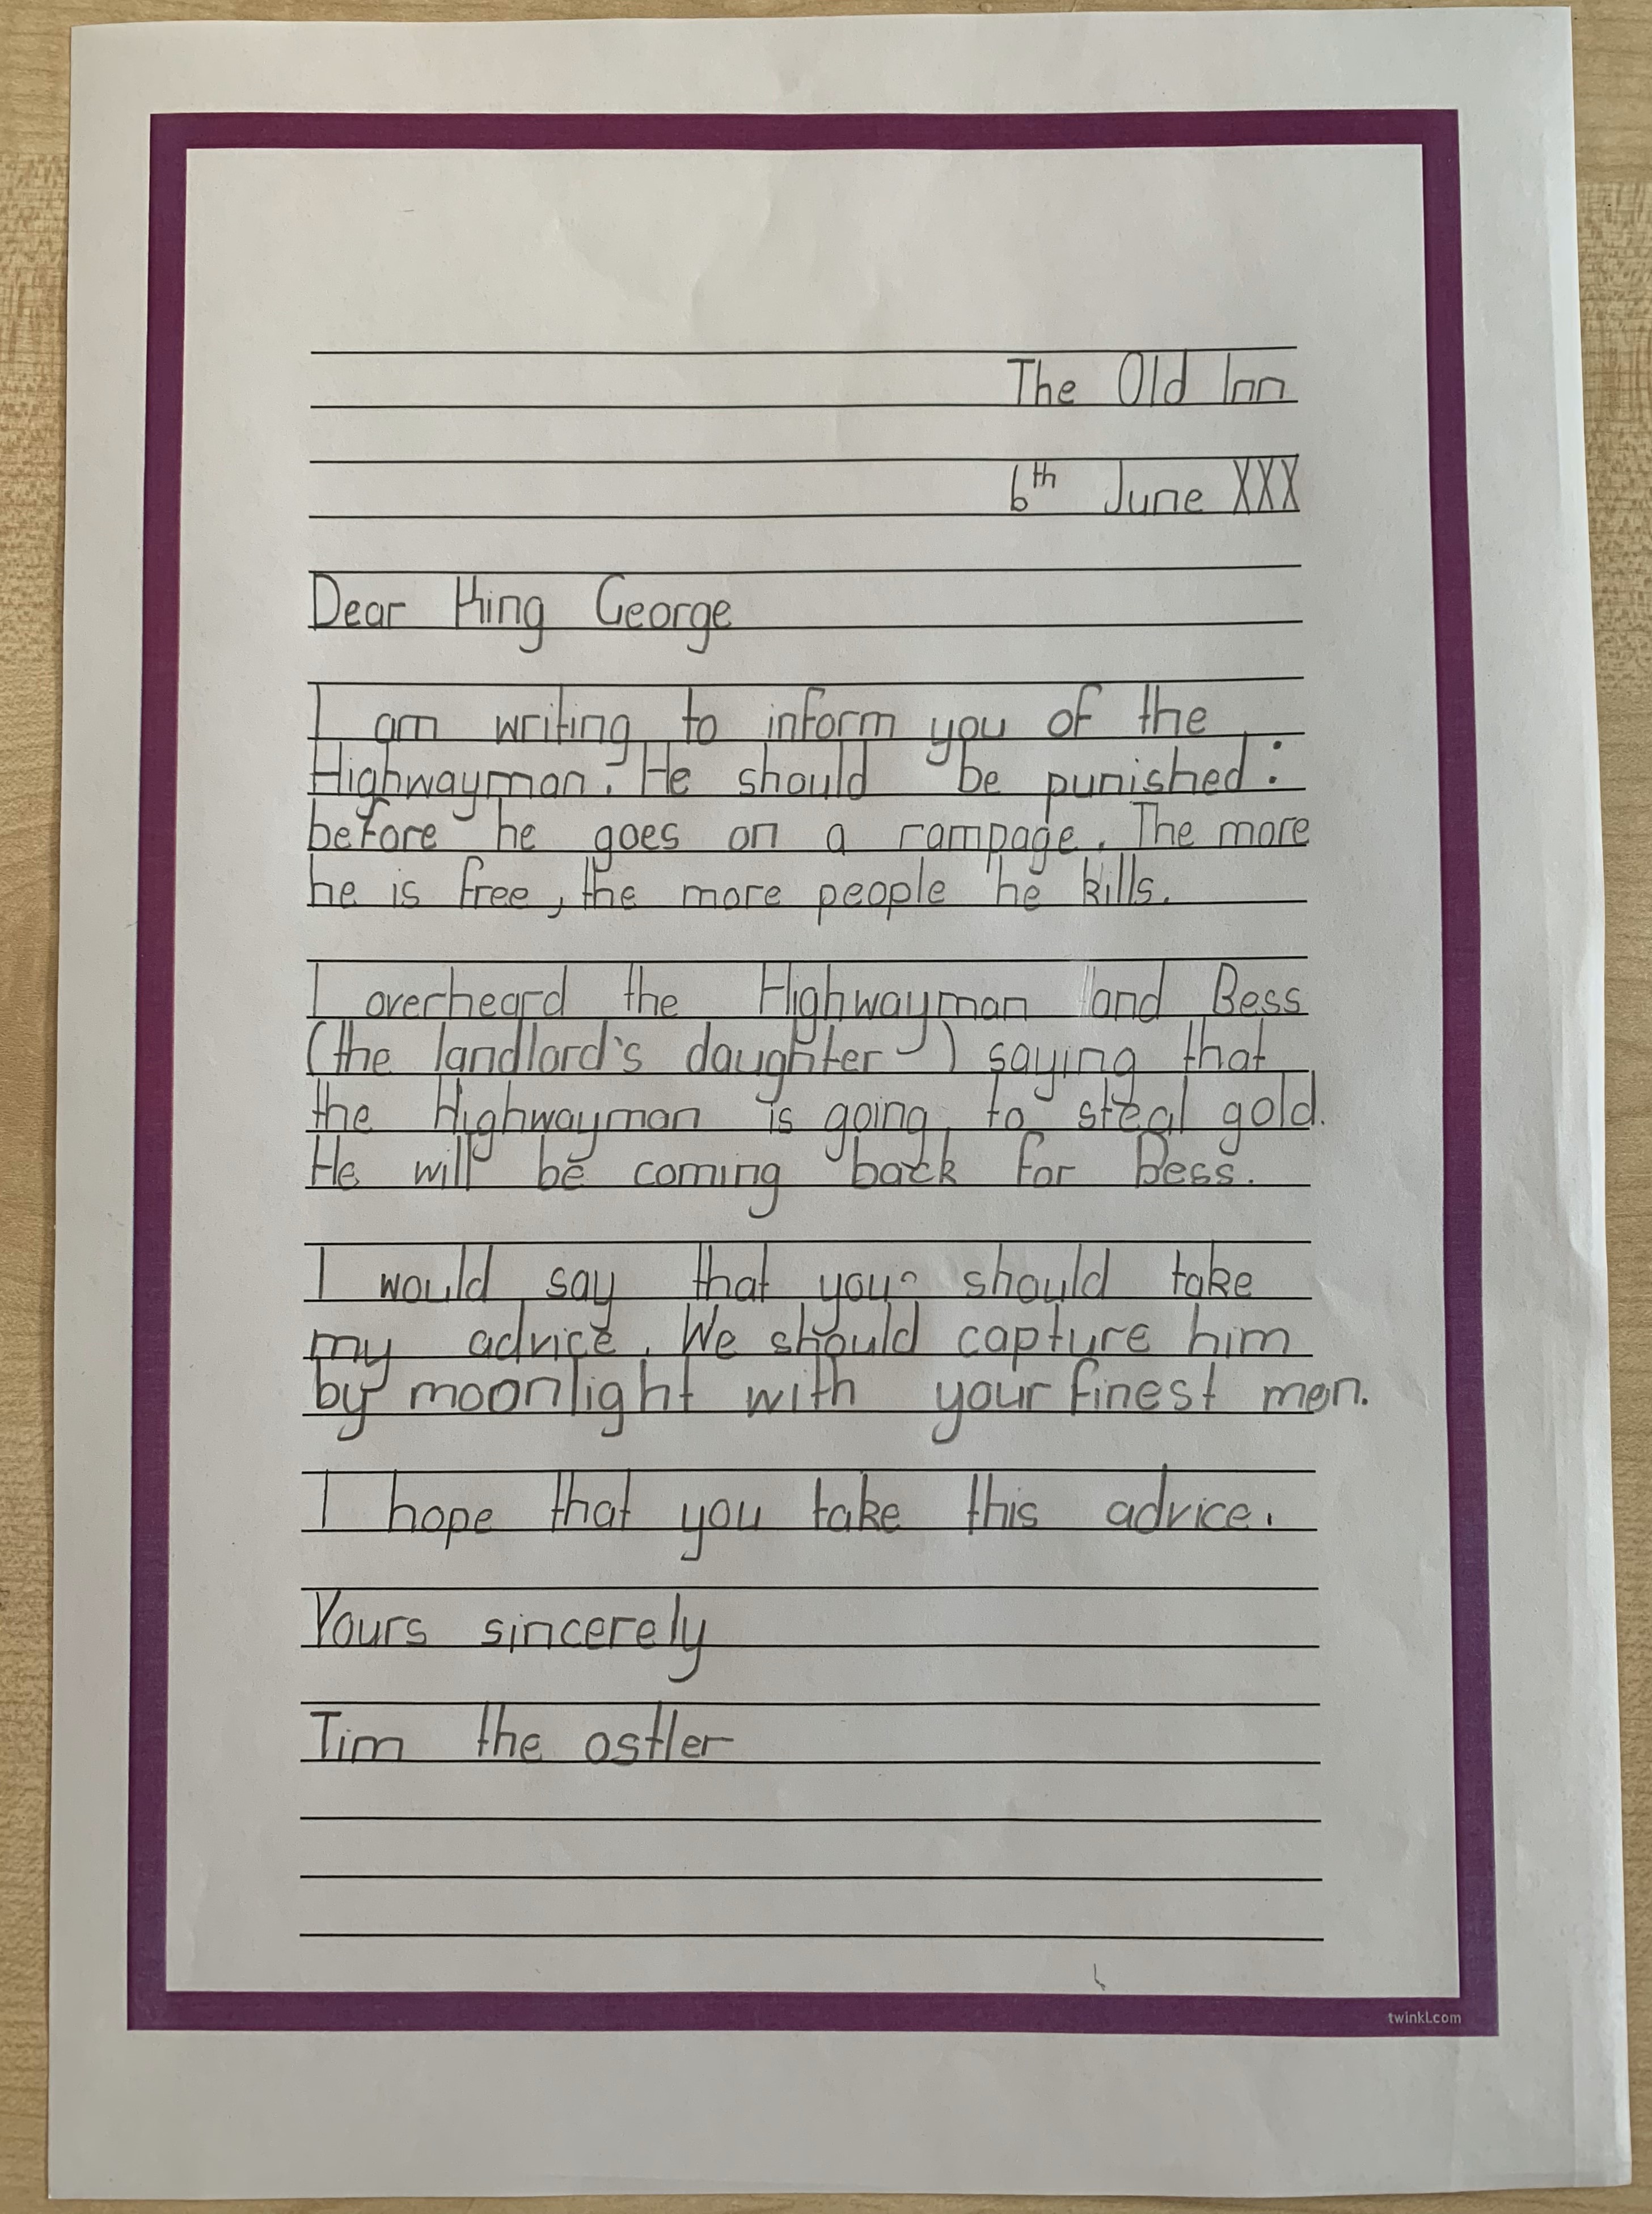 The Old Inn
6th June XXX
Dear King George
I am writing to inform you of the
Highwayman. He should be punished:
before he goes on a rampage. The more
he is free, the more people he kills.
I overheard the Highwayman and Bess
(the landlord's daughter) saying that
the Highwayman is going to steal gold.
He will be coming back for Bess.
I would say that you should take
my advice. We should capture him
by moonlight with your finest men.
I hope that you take this advice.
Yours sincerely
Tim the ostler
twinkl.com